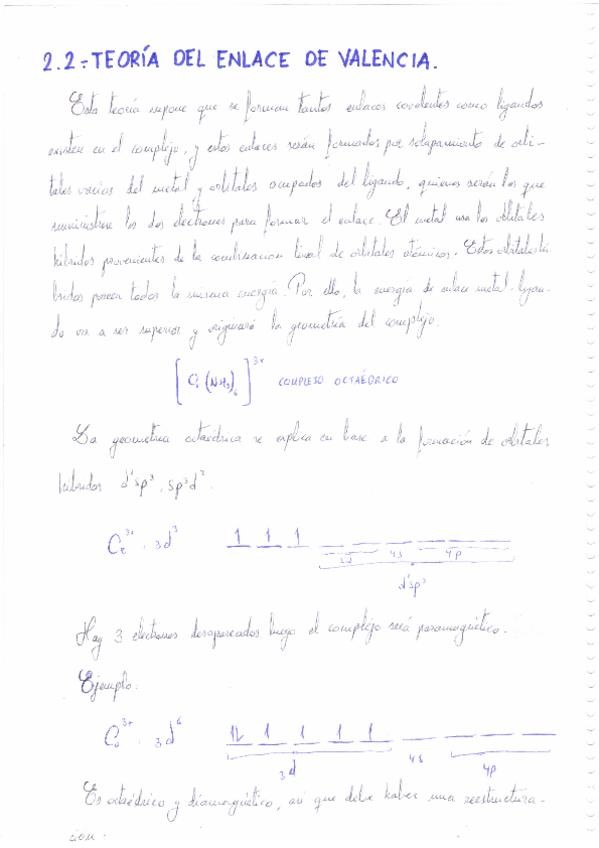 2.2-TEORÍA DEL ENLACE DE VALENCIA.
Esta teoría supone que se forman tantos enlaces covalentes como ligandos
existen en el complejo, y estos enlaces serán formados por solapamiento de orbi-
tales vacíos del metal y orbitales ocupados del ligando, quienes serán los que
suministren los dos electrones para formar el enlace. El metal usa los orbitales
híbridos provenientes de la combinación lineal de orbitales atómicos. Estos orbitales hí-
bridos poseen todos la misma energía. Por ello, la energía de enlace metal-ligan-
do va a ser superior y originará la geometría del complejo.
[Cr(NH3)6]3+ COMPLEJO OCTAÉDRICO
La geometría octaédrica se explica en base a la formación de orbitales
híbridos d2sp3, sp3d2.
Cr3+ · 3d3 1 1 1
3d 4s 4p
d2sp3
Hay 3 electrones desapareados luego el complejo será paramagnético.
Ejemplo:
Co3+ · 3d6 1l 1 1 1 1
3d 4s 4p
Es octaédrico y diamagnético, así que debe haber una reestructura-
ción: